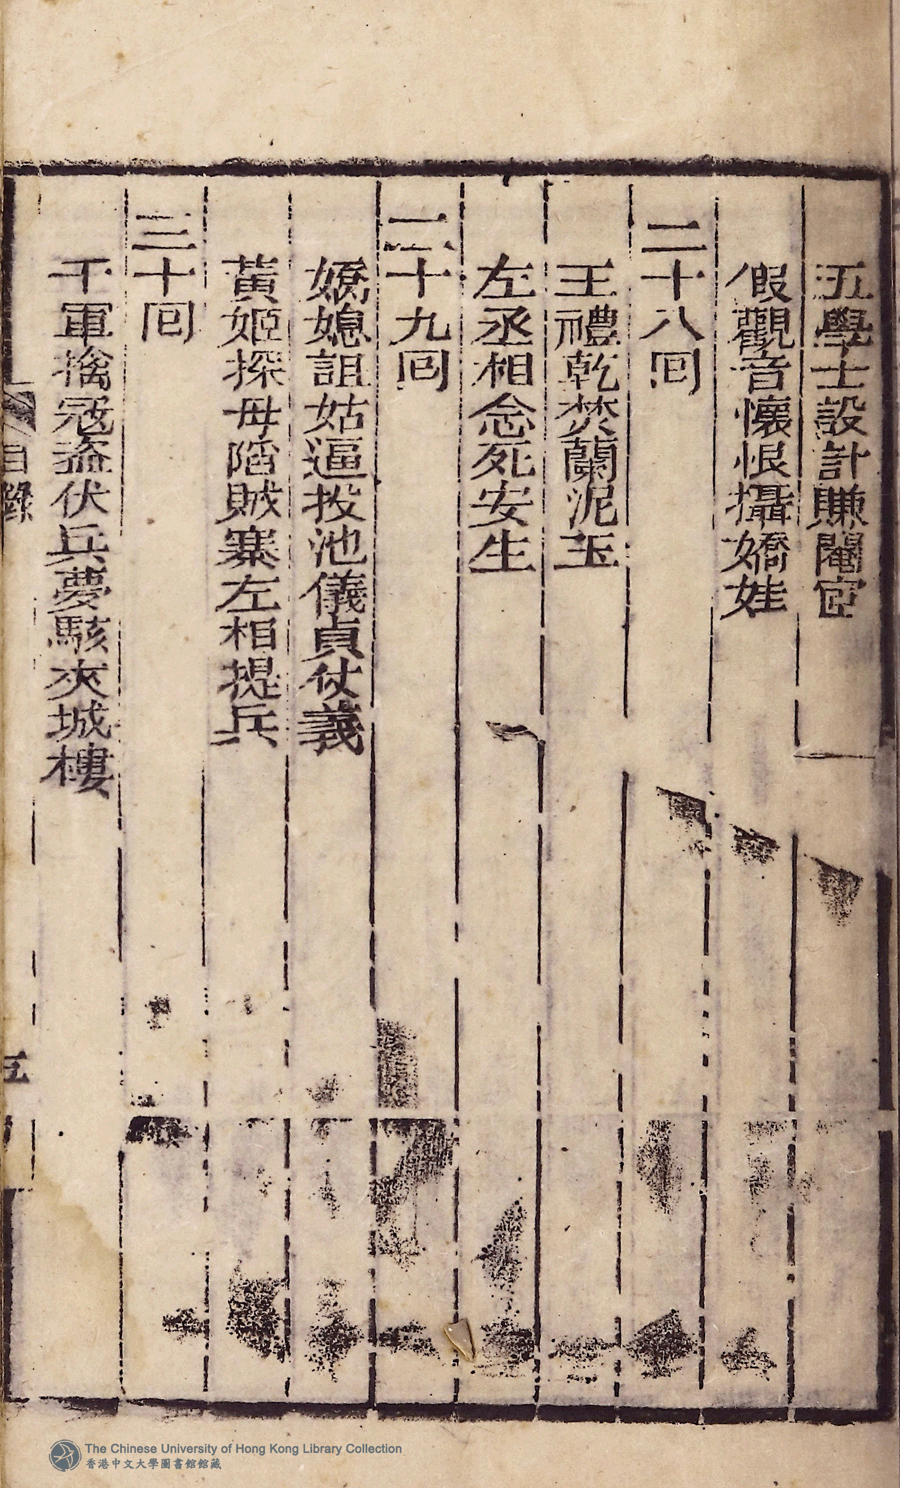 五學士設計賺閹宦
假觀音懷恨攝嬌娃
二十八回
王禮乾焚蘭泥玉
左丞相念死安生
二十九回
嬌媳詛姑逼投池儀貞仗義
黃姬探母陷賊寨左相提兵
三十回
千軍擒冦盗伏兵夢駭夾城樓
目錄
五
The Chinese University of Hong Kong Library Collection
香港中文大學圖書館館藏